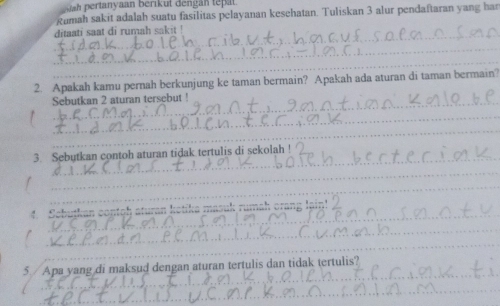 pertanyaan berikut dengan tepat.
Rumah sakit adalah suatu fasilitas pelayanan kesehatan. Tuliskan 3 alur pendaftaran yang har
ditaati saat di rumah sakit !
tidak boleh ribut, harus sopan san
tidak boleh lari-lari
2. Apakah kamu pernah berkunjung ke taman bermain? Apakah ada aturan di taman bermain?
Sebutkan 2 aturan tersebut !
bermain ganti gantian kalo be
tidak boleh teriak
3. Sebutkan contoh aturan tidak tertulis di sekolah !
dikelas tidak boleh berteriak
4. Sebutkan contoh aturan ketika masuk rumah orang lain!
ucapkan salam sopan santu
kepada pemilik rumah
5. Apa yang di maksud dengan aturan tertulis dan tidak tertulis?
tertulis tidak boleh teriak ti
tertulis ucapkan salam